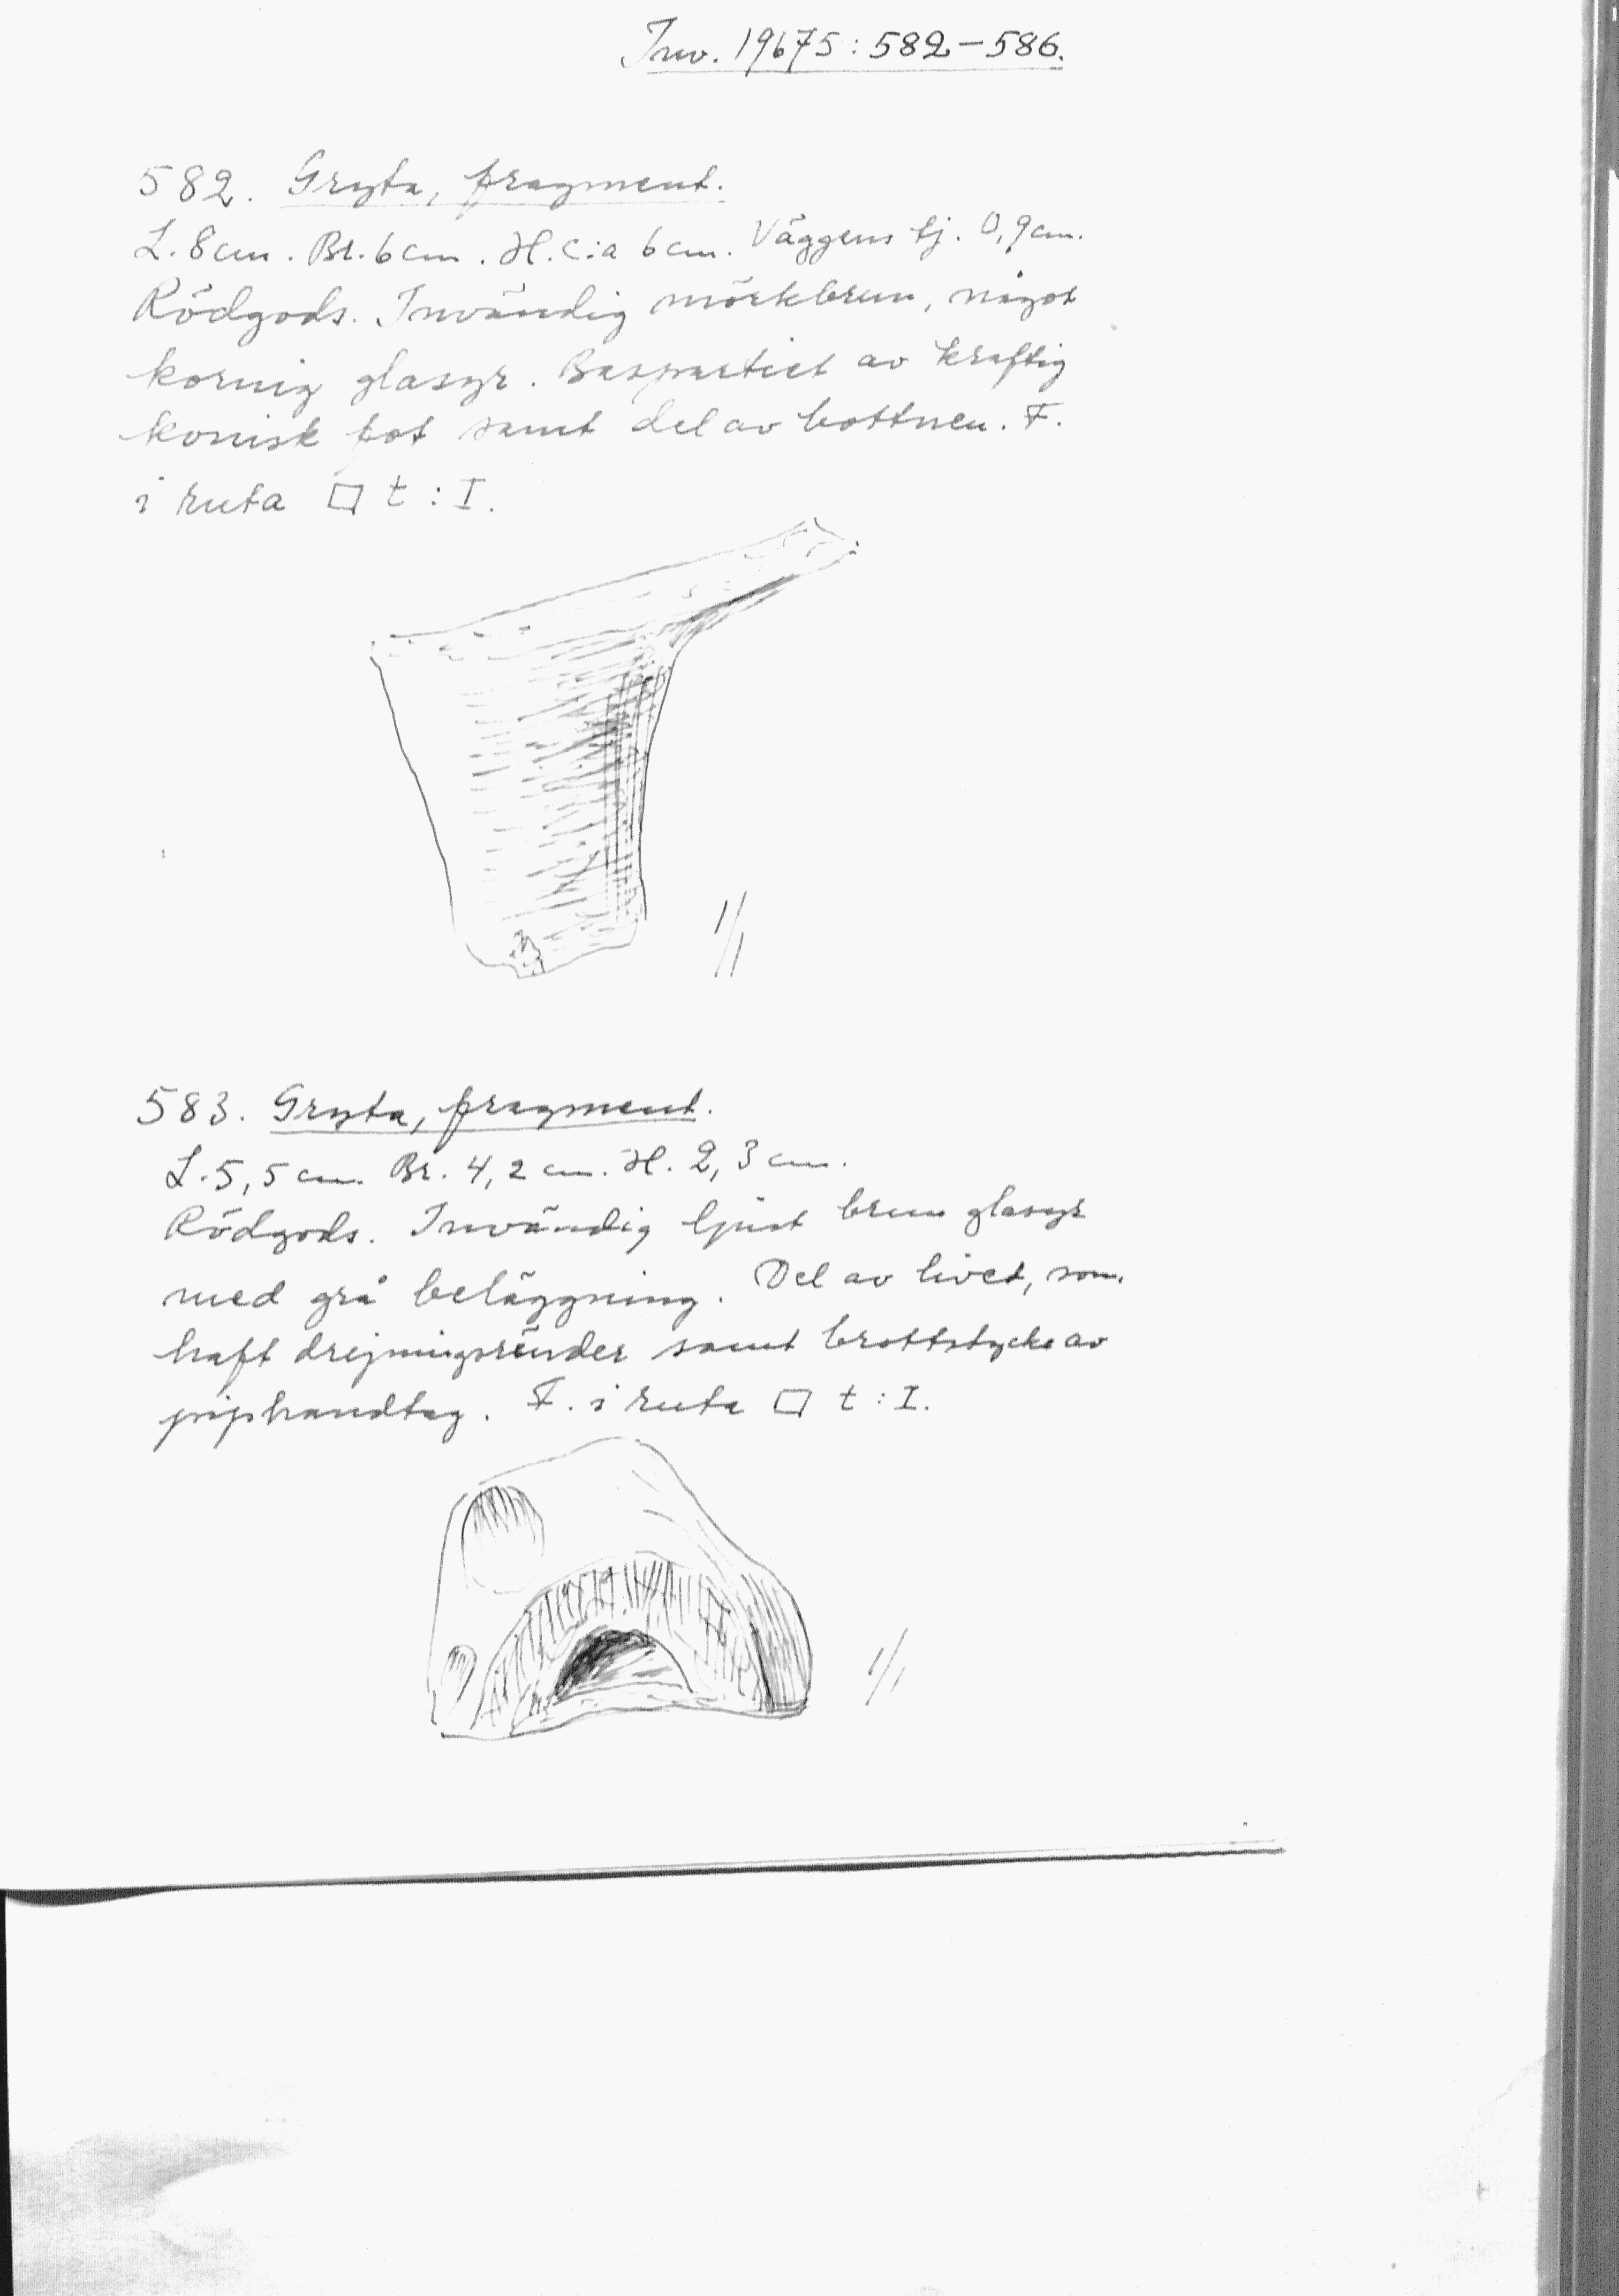 Inv. 19675:582–586.
582. Gryta, fragment.
L. 8 cm. Br. 6 cm. H. c:a 6 cm. Väggens tj. 0,9 cm.
Rödgods. Invändig mörkbrun, något
kornig glasyr. Baspartiet av kraftig
konisk fot samt del av bottnen. F.
i ruta □ t : I.
1/1
583. Gryta, fragment.
L. 5,5 cm. Br. 4,2 cm. H. 2,3 cm.
Rödgods. Invändig ljust brun glasyr
med grå beläggning. Del av livet, som
haft drejningsränder samt brottstycke av
piphandtag. F. i ruta □ t : I.
1/1